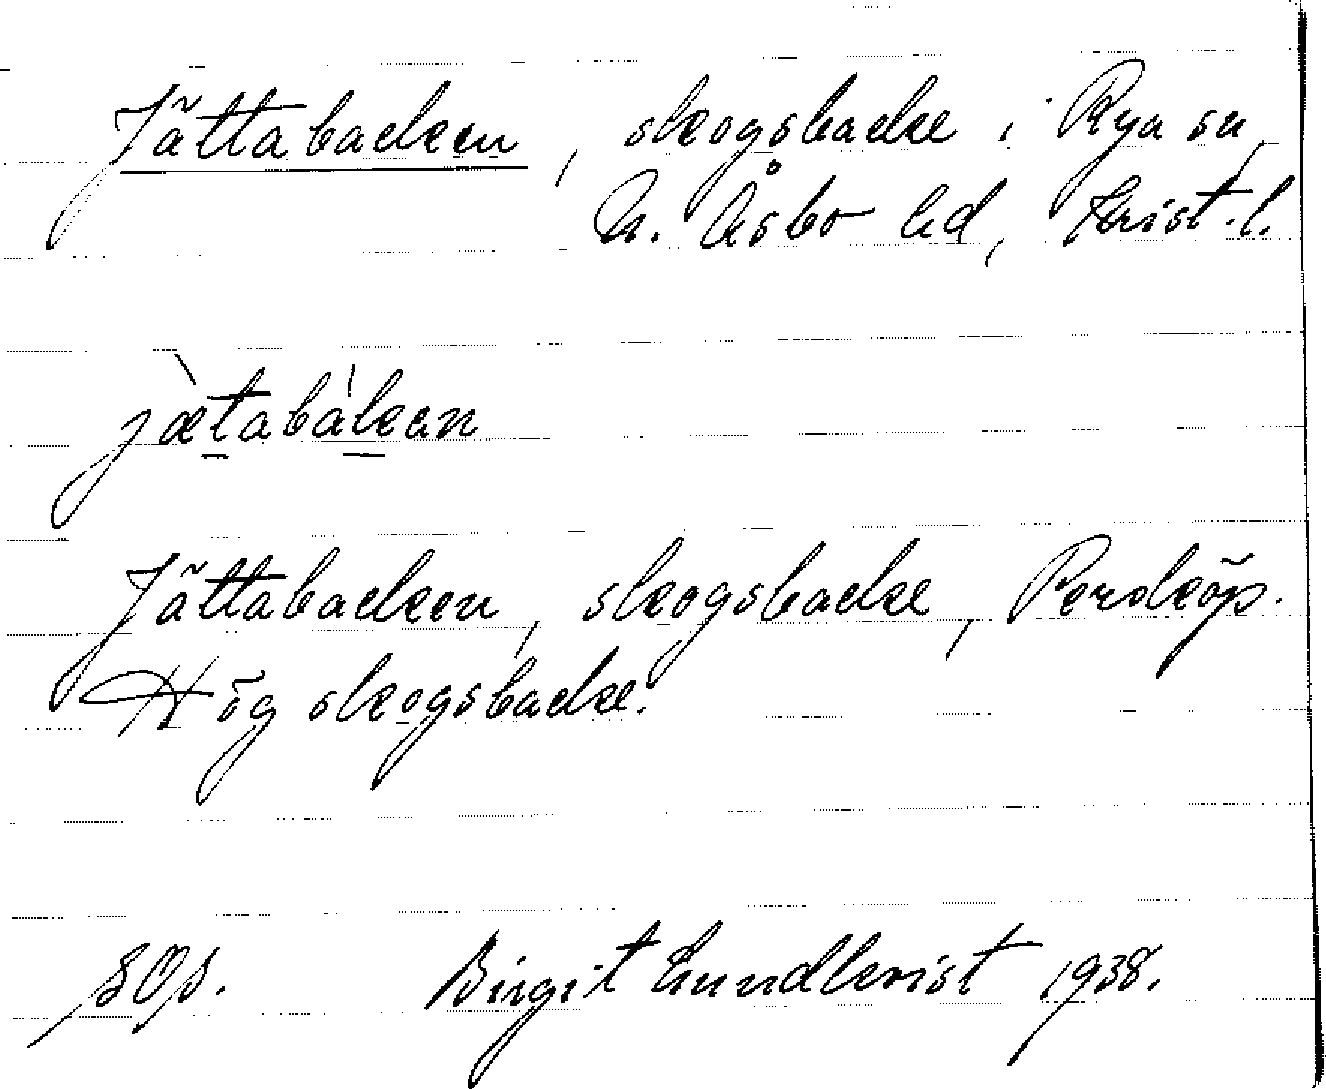 Jättabacken, skogsbacke i Rya sn,
N. Åsbo hd, Krist. l.
jætabàkan
Jättabacken, skogsbacke, Persköp.
Hög skogsbacke.
SOS. Birgit Lundkvist 1938.